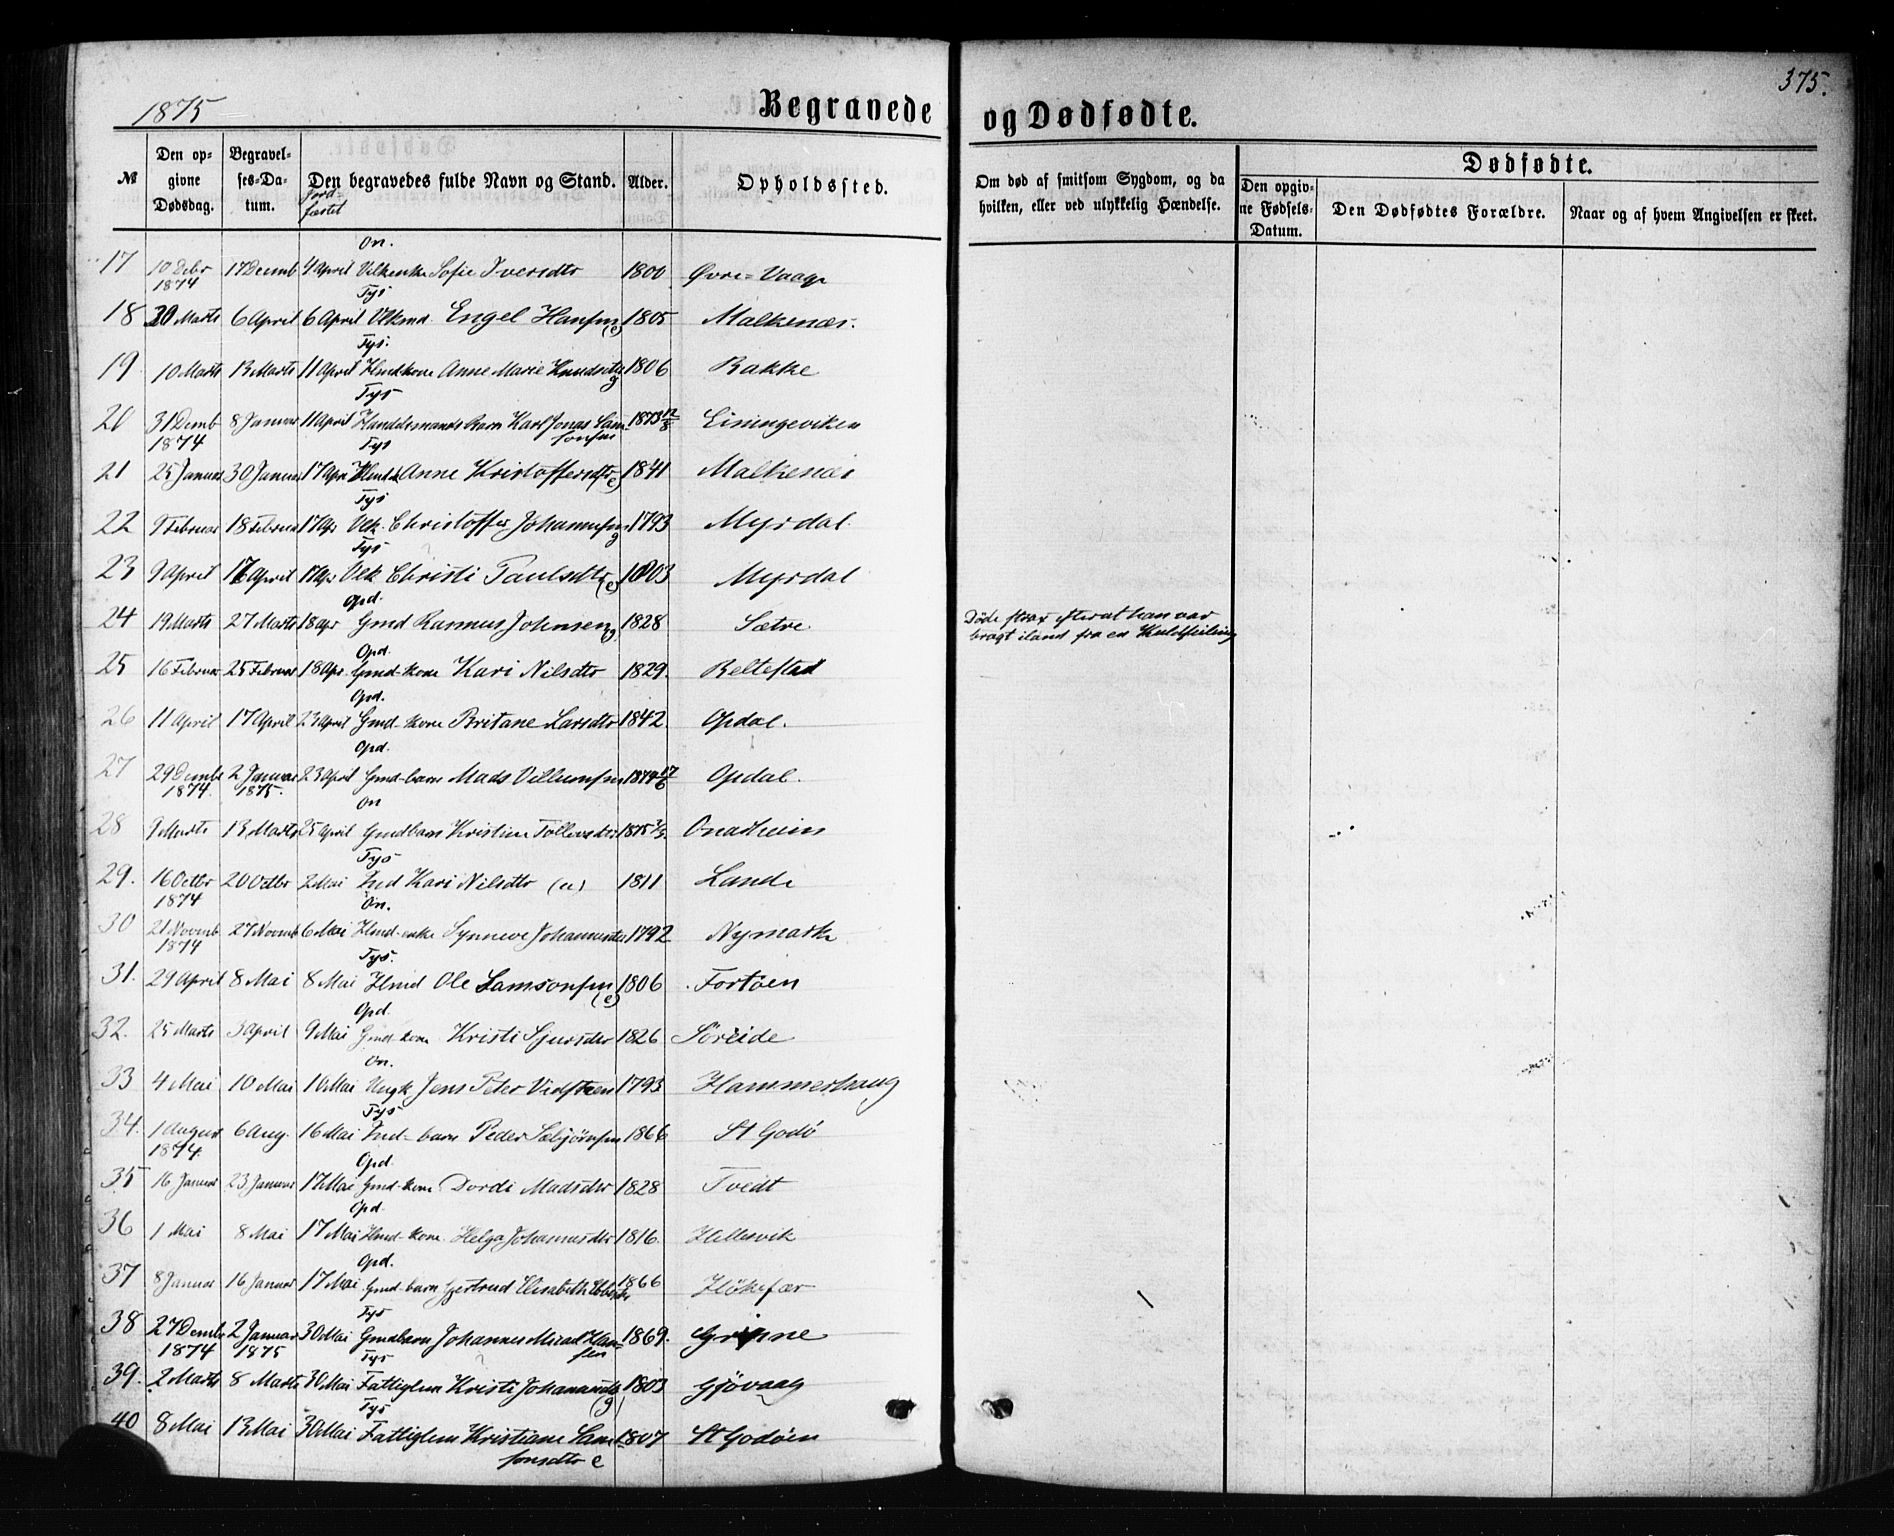 1875
375.
Begravede og Dødfødte.
№ Den opgivne Dødsdag. Begravelses-Datum. Den begravedes fulde Navn og Stand. Alder. Opholdssted. Om død af smitsom Sygdom, og da hvilken, eller ved ulykkelig Hændelse. Dødfødte. Den opgivne Fødsels-Datum. Den Dødfødtes Forældre. Naar og af hvem Angivelsen er skeet.
Jordfæstet
On.
17 10 Debr 1874 17 Decmb 4 April Sofie Iversdtr 1800 Øvre-Vaage
Tys
18 30 Marts 6 April 6 April Vlkmd. Engel Hansen (e) 1805 Malkenæs.
Tys.
19 10 Marts 13 Marts 11 April Hmdkone Anne Marie Knudsdtr g 1806 Bakke
Tys
20 31 Decmb 1874 8 Januar 11 April Handelsmands Barn Karl Jonas Samsonsen 1873 12/8 Einingeviken
Tys
21 25 Januar 30 Januar 17 Apr Anne Kristoffersdtr (e) 1841 Malkenæs
Tys
22 9 Februar 18 Februar 17 Apr Vlk. Christoffer Johannesen g 1793 Myrdal
Tys
23 9 April 17 April 17 Apr Vlk Christi Paulsdtr (e) 1803 Myrdal
Opd.
24 19 Marts 27 Marts 18 apr Gmd Rasmus Johnsen g 1828 Sætre Døde strax efterat han var bragt iland fra en Kuldseiling
Opd.
25 16 Februar 25 Februar 18 Apr. Gmd-kone Kari Nilsdtr 1829. Beltestad
Opd.
26 11 April 17 April 23 April Gmd-kone Britane Larsdtr 1842 Opdal.
Opd.
27 29 Decmbr 1874. 2 Januar 1875. 23 April Gmd-barn Mads Villumsen 1874 17/6 Opdal.
On
28 9 Marts 13 Marts 25 April Gmdbarn Kristine Tollevsdtr 1875 Onarheim
Tys
29. 16 Octbr 1874 20 Octbr 2 Mai Ind Kari Nilsdtr (u) 1811 Lande
On.
30 21 Novmb 1874 27 Novmb 6 Mai Hmd-enke Synneve Johannesdtr 1792 Nymark
Tys.
31. 29 April 8 Mai 8 Mai Hmd Ole Samsonsen (e) 1806 Fortøen
Opd.
32. 25 Marts 3 April 9 Mai Gmd-kone Kristi Sjursdtr 1826 Søreide
On.
33 4 Mai 10 Mai 10 Mai Ungk Jens Peter Vidsteen 1793 Hammerhaug
Tys
34. 1 August 1874. 6 Aug. 16 Mai Ind-barn Peder Sæbjørnsen 1866 St Godø
Opd.
35 16 Januar 23 Januar 17 Mai Gmd-kone Dordi Madsdtr 1828 Tvedt
Opd
36 1 Mai 8 Mai 17 Mai Hmd-kone Helga Johannesdtr 1816. Hellesvik
Opd.
37 8 Januar 16 Januar 17 Mai Gmd-barn Gjertrud Elisabeth 1866 Høkefær
Tys
38 27 Decmbr 1874 2 Januar 1875 30 Mai Gmdbarn Johannes Mikal Hansen 1869. Gripne
Tys
39. 2 Marts 8 Marts 30 Mai Fattiglem Kristi Johannesdtr (g) 1803 Gjøvaag
Tys
40 8 Mai 13 Mai 30 Mai Fattiglem Kristiane Samsonsdtr e 1807 St Godøen